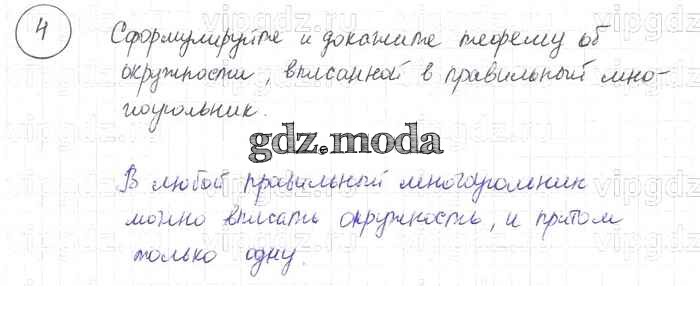 4
Сформулируйте и докажите теорему об
окружности, вписанной в правильный мно-
гоугольник.
gdz.moda
В любой правильный многоугольник
можно вписать окружность, и притом
только одну.